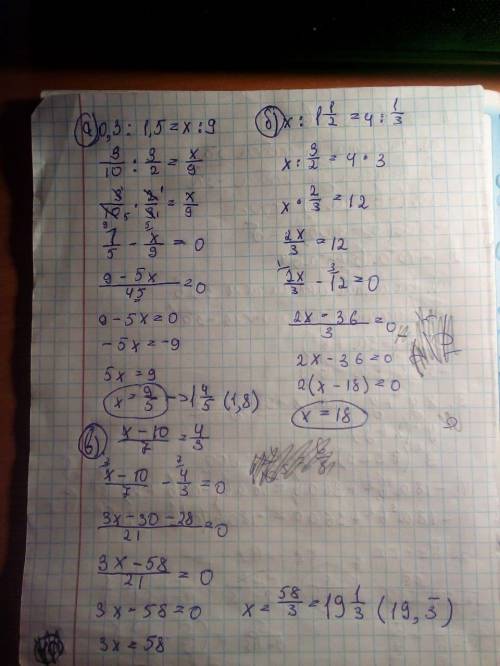 а) 0,3 : 1,5 = x : 9
3/10 : 3/2 = x/9
3/10 · 2/3 = x/9
1/5 - x/9 = 0
9 - 5x / 45 = 0
9 - 5x = 0
-5x = -9
5x = 9
x = 9/5 -> 1 4/5 (1,8)
б) x : 1 1/2 = 4 : 1/3
x : 3/2 = 4 · 3
x · 2/3 = 12
2x/3 = 12
2x/3 - 12 = 0
2x - 36 / 3 = 0
2x - 36 = 0
2(x - 18) = 0
x = 18
в) x - 10 / 7 = 4/3
x - 10 / 7 - 4/3 = 0
3x - 30 - 28 / 21 = 0
3x - 58 / 21 = 0
3x - 58 = 0
3x = 58
x = 58/3 = 19 1/3 (19,3̅)